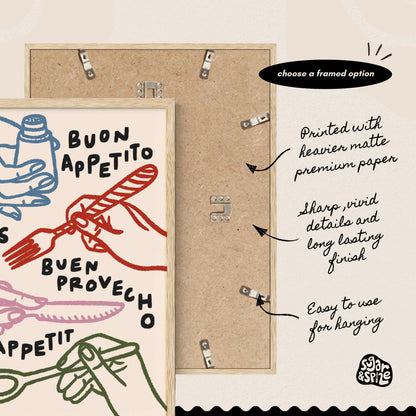 choose a framed option
BUON
APPETITO
S
BUEN
PROVECHO
APPETIT
Printed with
heavier matte
premium paper
Sharp, vivid
details and
long lasting
finish
Easy to use
for hanging
sugar
&SPIZE